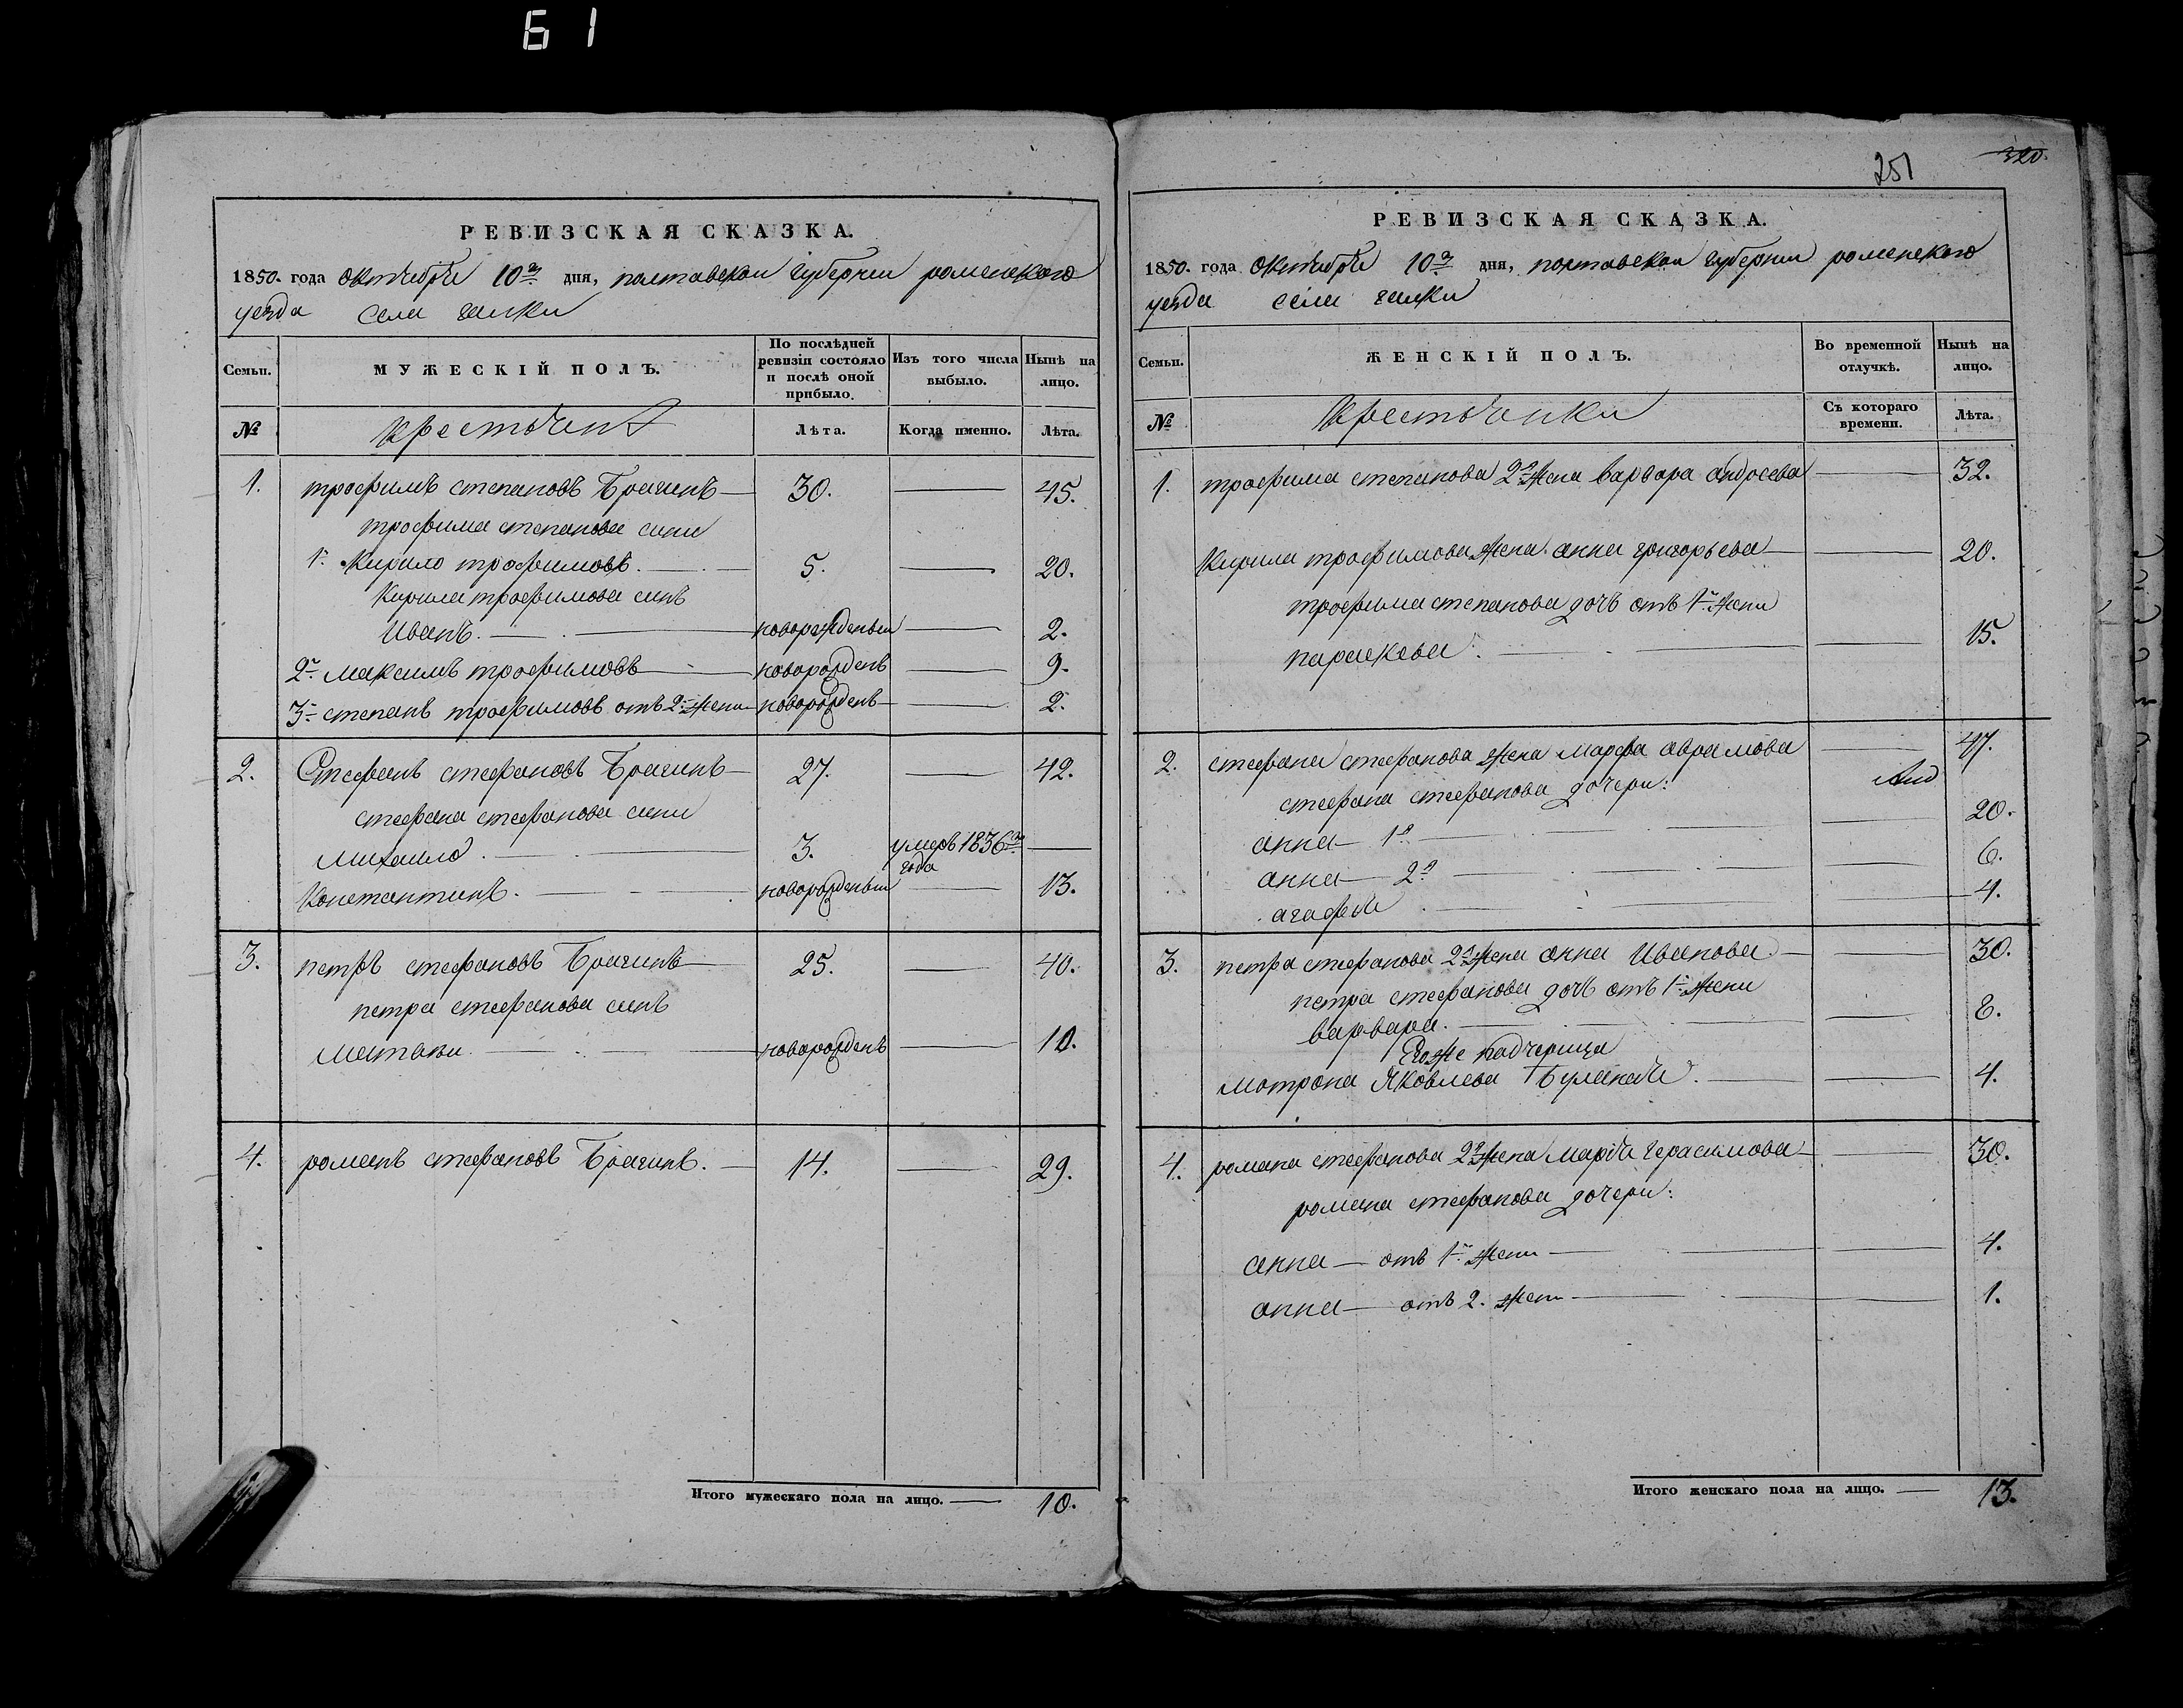 61
РЕВИЗСКАЯ СКАЗКА.
1850. года октября 10го дня, полтавской губернии роменского
уезда села галки
Семьи. МУЖЕСКІЙ ПОЛЪ. По послѣдней ревизіи состояло и послѣ оной прибыло. Изъ того числа выбыло. Нынѣ на лицо.
№ крестьяне Лѣта. Когда именно. Лѣта.
1. трофимъ степановъ Брагинъ 30. 45.
трофима степанова сини
1й Кирило трофимовъ. 5. 20.
Кирила трофимова синъ
Иванъ. новорожденъи 2.
2й максимъ трофимовъ новорожденъ 9.
3й степанъ трофимовъ отъ 2й жени новорожденъ 2.
2. Стефанъ стефановъ Брагинъ 27. 42.
стефана стефанова сини
михаило. 3. умеръ 1836го года
Константинъ. новорожденъи 13.
3. петръ стефановъ Брагинъ 25. 40.
петра стефанова синъ
новорожденъ 10.
4. романъ стефановъ Брагинъ. 14. 29.
Итого мужескаго пола на лицо. 10.
251
320.
РЕВИЗСКАЯ СКАЗКА.
1850. года октября 10го дня, полтавской губернии роменского
уезда села галки
Семьи. ЖЕНСКІЙ ПОЛЪ. Во временной отлучкѣ. Нынѣ на лицо.
№ Крестьянки Съ котораго времени. Лѣта.
1. трофима степанова 2я жена варвара андреева 32.
Кирила трофимова жена анна григорьева 20.
трофима степанова дочъ отъ 1й жени
параскева. 15.
2. стефана стефанова жена марфа аврамова 47.
стефана стефанова дочери:
анна 1я 20.
анна 2я 6.
агафия 4.
3. петра стефанова 2я жена анна Иванова 30.
петра стефанова дочъ отъ 1й жени
варвара. 8.
Егоже падчерица
мотрона Яковлева 4.
4. романа стефанова 2я жена Мария герасимова 30.
романа стефанова дочери:
анна отъ 1й жени 4.
анна отъ 2. жени 1.
Итого женскаго пола на лицо. 13.